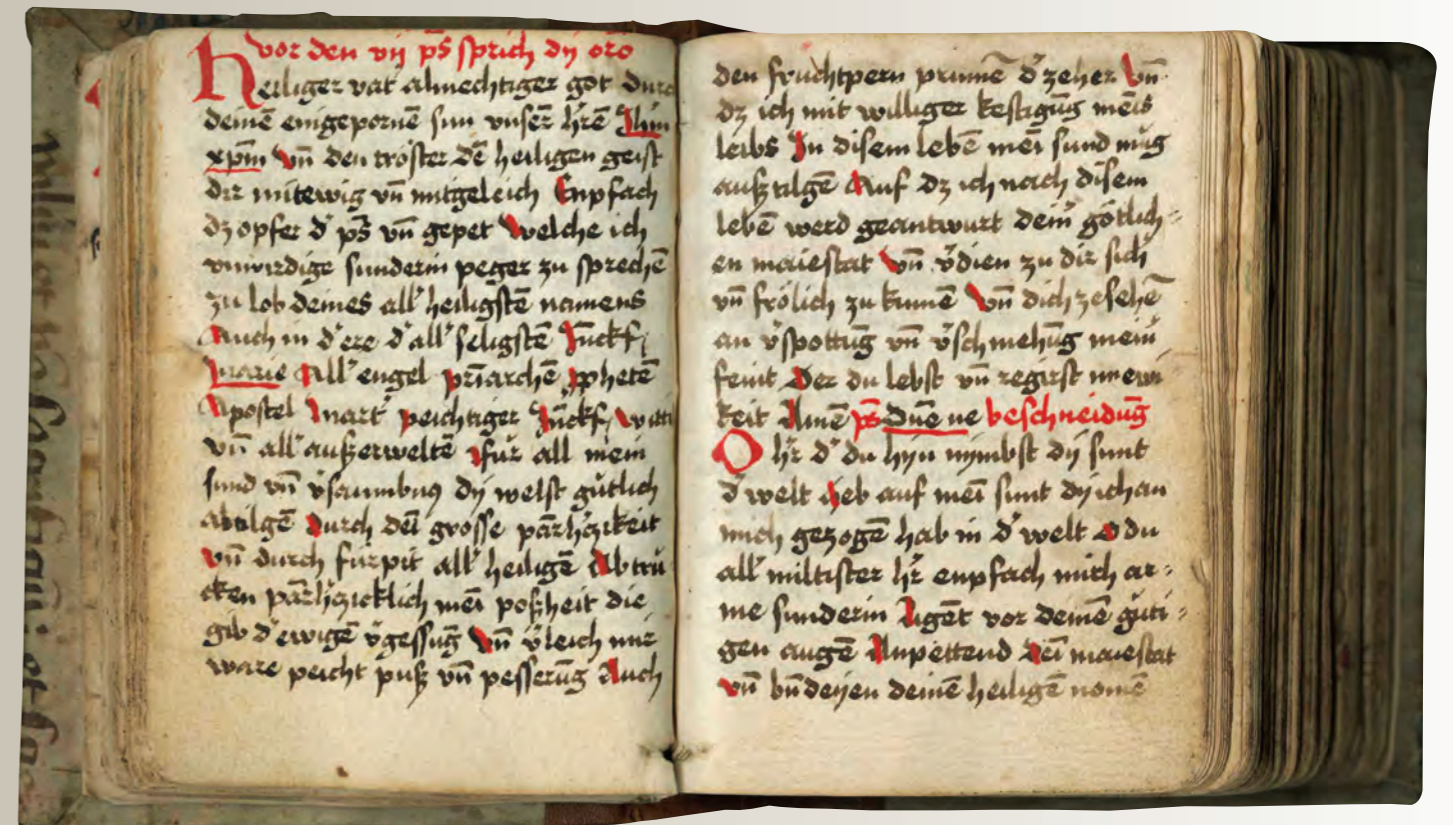 vor den vij ps sprich dy oro
Heiliger vat almechtiger got durch
deinē eingepornē sun vnserᷓ hrē Jhm
xpm Vn̄ den tröster dē heiligen geist
dir mitewig vn̄ mitgeleich Enpfach
dz opfer d' ps vn̄ gepet Welche ich
vnwirdige sunderin peger zu sprechē
zu lob deines all' heiligstē namens
Auch in d' ere d' all' seligstē Junckf
Marie All' engel priarchē pphetē
Apostel Mart' peichtiger Junckf witi
vn̄ all' außerweltē für all mein
sund vn̄ v'saumbnus dy welst gütlich
abtilgē Durch dei grosse parhczikeit
Vn̄ durch fürpit all' heiligē Abtru
cken parhczicklich mei poßheit die
gib d' ewigē v'gessūg Vn̄ v'leich mir
ware peicht puß vn̄ pesserūg Auch
den fruchtpern prunnē d' zeher Vn̄
dz ich mit williger kestigūg meis
leibs In disem lebē mei sund mug
außtilgē Auf dz ich nach disem
lebē werd geantwurt dein' götlich=
en maiestat Vn̄ v'dien zu dir sich'
vn̄ frölich zu kumē Vn̄ dich zesehē
an v'spottūg vn̄ v'schmehūg mein'
feint Der du lebst vn̄ regirst in ewi
keit Amē ps Dnē ne beschneidūg
O hr d' du hyn nymbst dy sunt
d' welt heb auf mei sunt dy ich an
mich gezogē hab in d' welt O du
all' miltister hr enpfach mich ar=
me sunderin ligēt vor deinē güti=
gen augē Anpettend dei maiestat
vn̄ bn̄deyen deinē heiligē namē